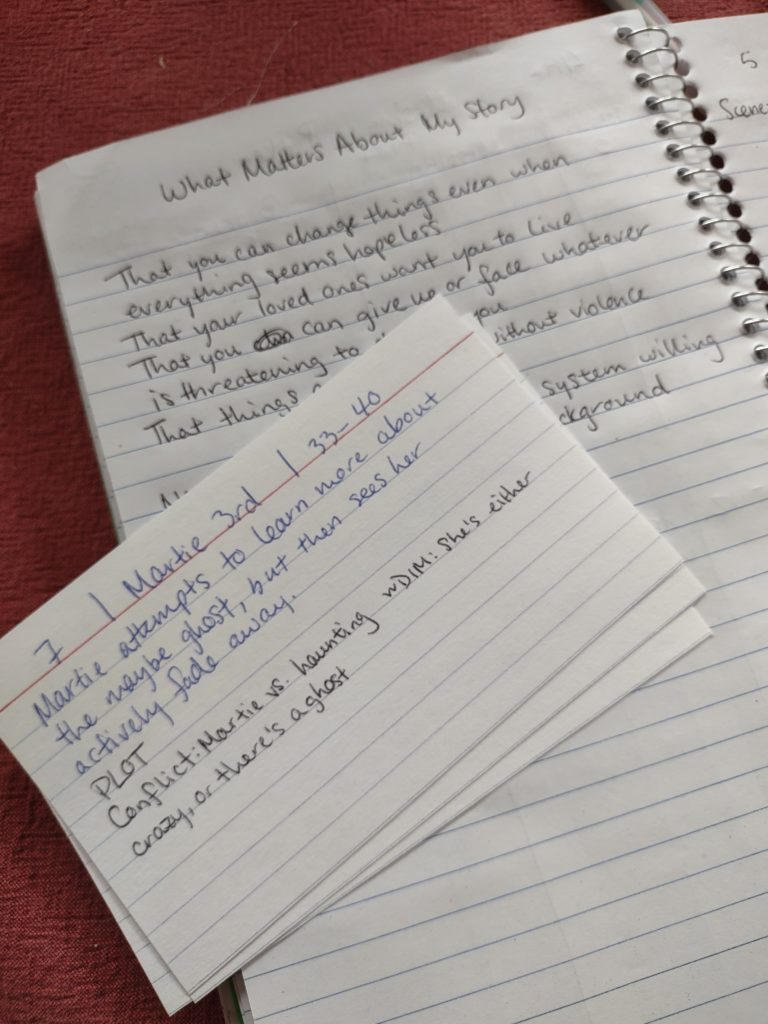 What Matters About My Story
That you can change things even when
everything seems hopeless
That your loved ones want you to live
That you can give up or face whatever
is threatening to you
That things without violence
system willing
ckground
5
Scene
7 | Martie 3rd | 33-40
Martie attempts to learn more about
the maybe ghost, but then sees her
actively fade away.
PLOT
Conflict: Martie vs. haunting wDIM: She's either
crazy, or there's a ghost